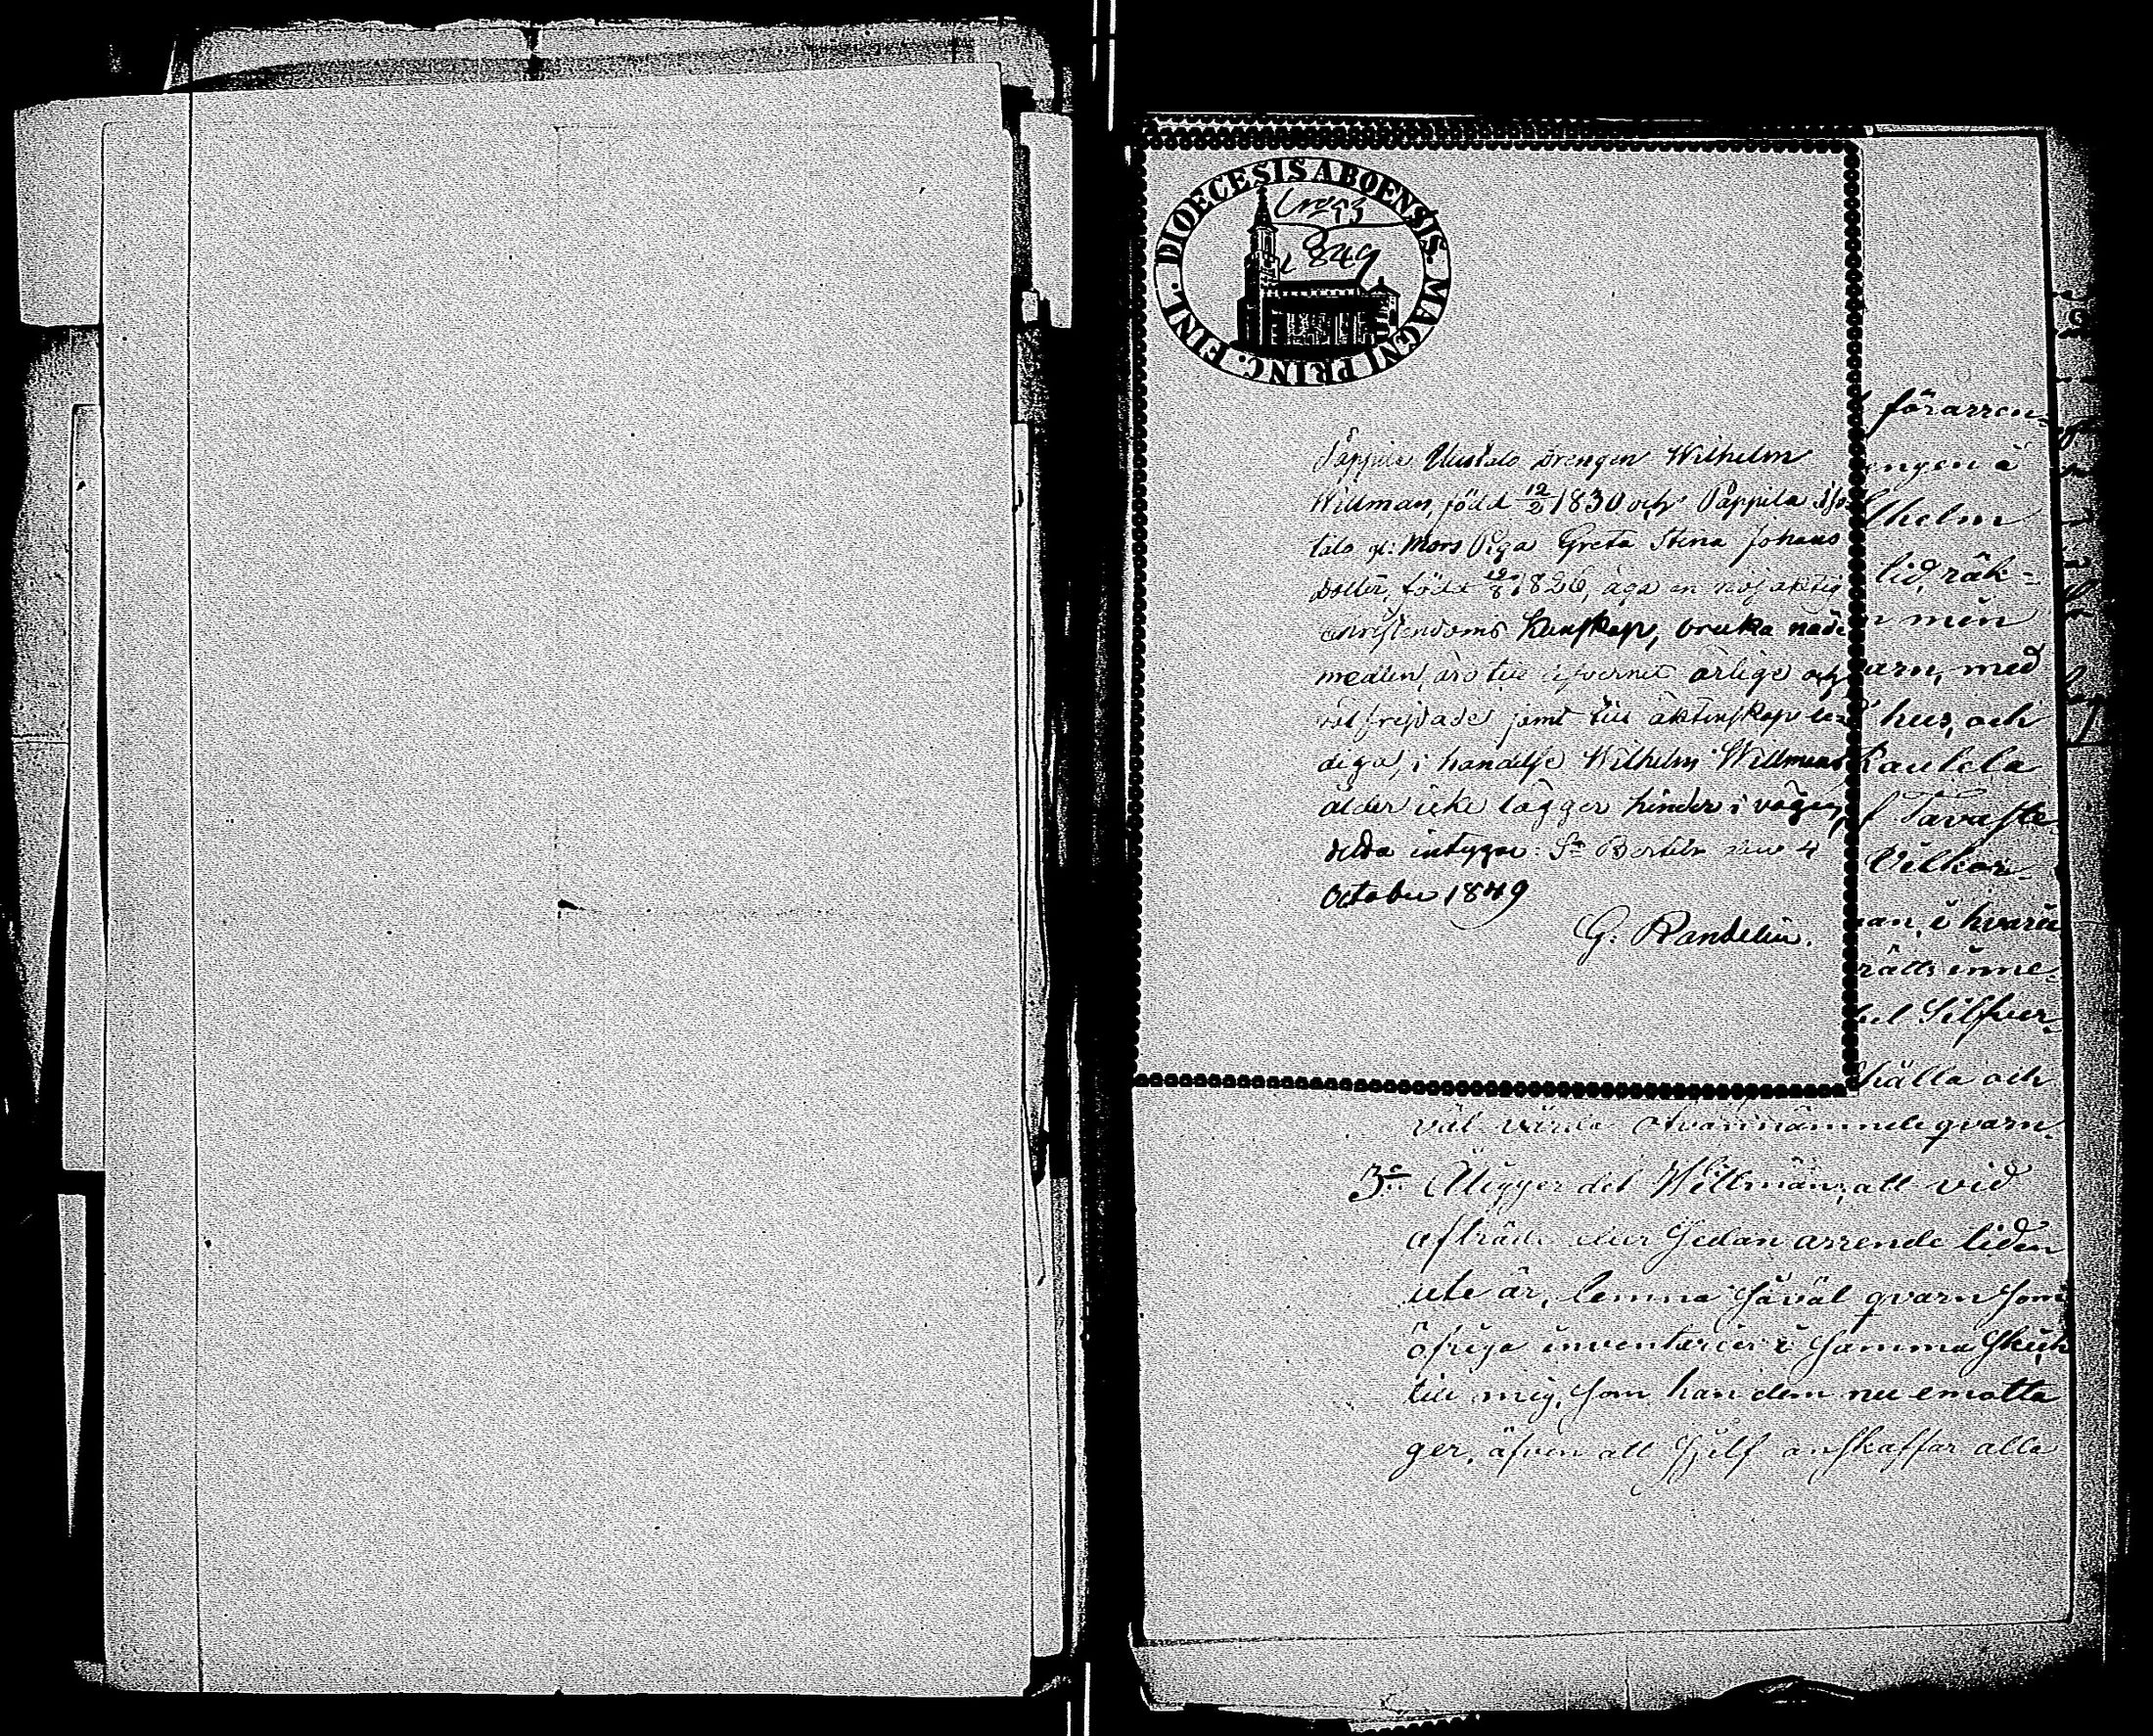 DIOECESIS ABOENSIS. MAGNI PRINC. FINL.
1849
Pappila Uusitalo drengen Wilhelm
Willman, född 12/2 1830 och Pappila
talo g: Mors Piga Greta Stina Johans
dotter, född 1826, äga en nöjaktig
christendoms kunskap, bruka nåde
medlen, äro till lefvernet ärlige och
väl frejdade samt till äktenskap le
diga, i händelse Wilhelm Willmans
ålder icke lägger hinder i vägen,
detta intygar. St Bertils den 4
October 1849
G: Randelin.
förarren-
engen å
lhelm
tid, räk-
n min
arn, med
hus, och
Kautela
f Tavaste
Vilkor.
an, i hvara
rätts inne-
bel Silfver
hålla och
väl vårda ofvannämnde qvarn.
3e Åligger det Willman, att vid
afträde eller sedan arrende tiden
ute är, lemna såväl qvarn som
öfriga inventarier i samma skick
till mig, som han dem nu emotta
ger, äfven att sjelf anskaffar alla